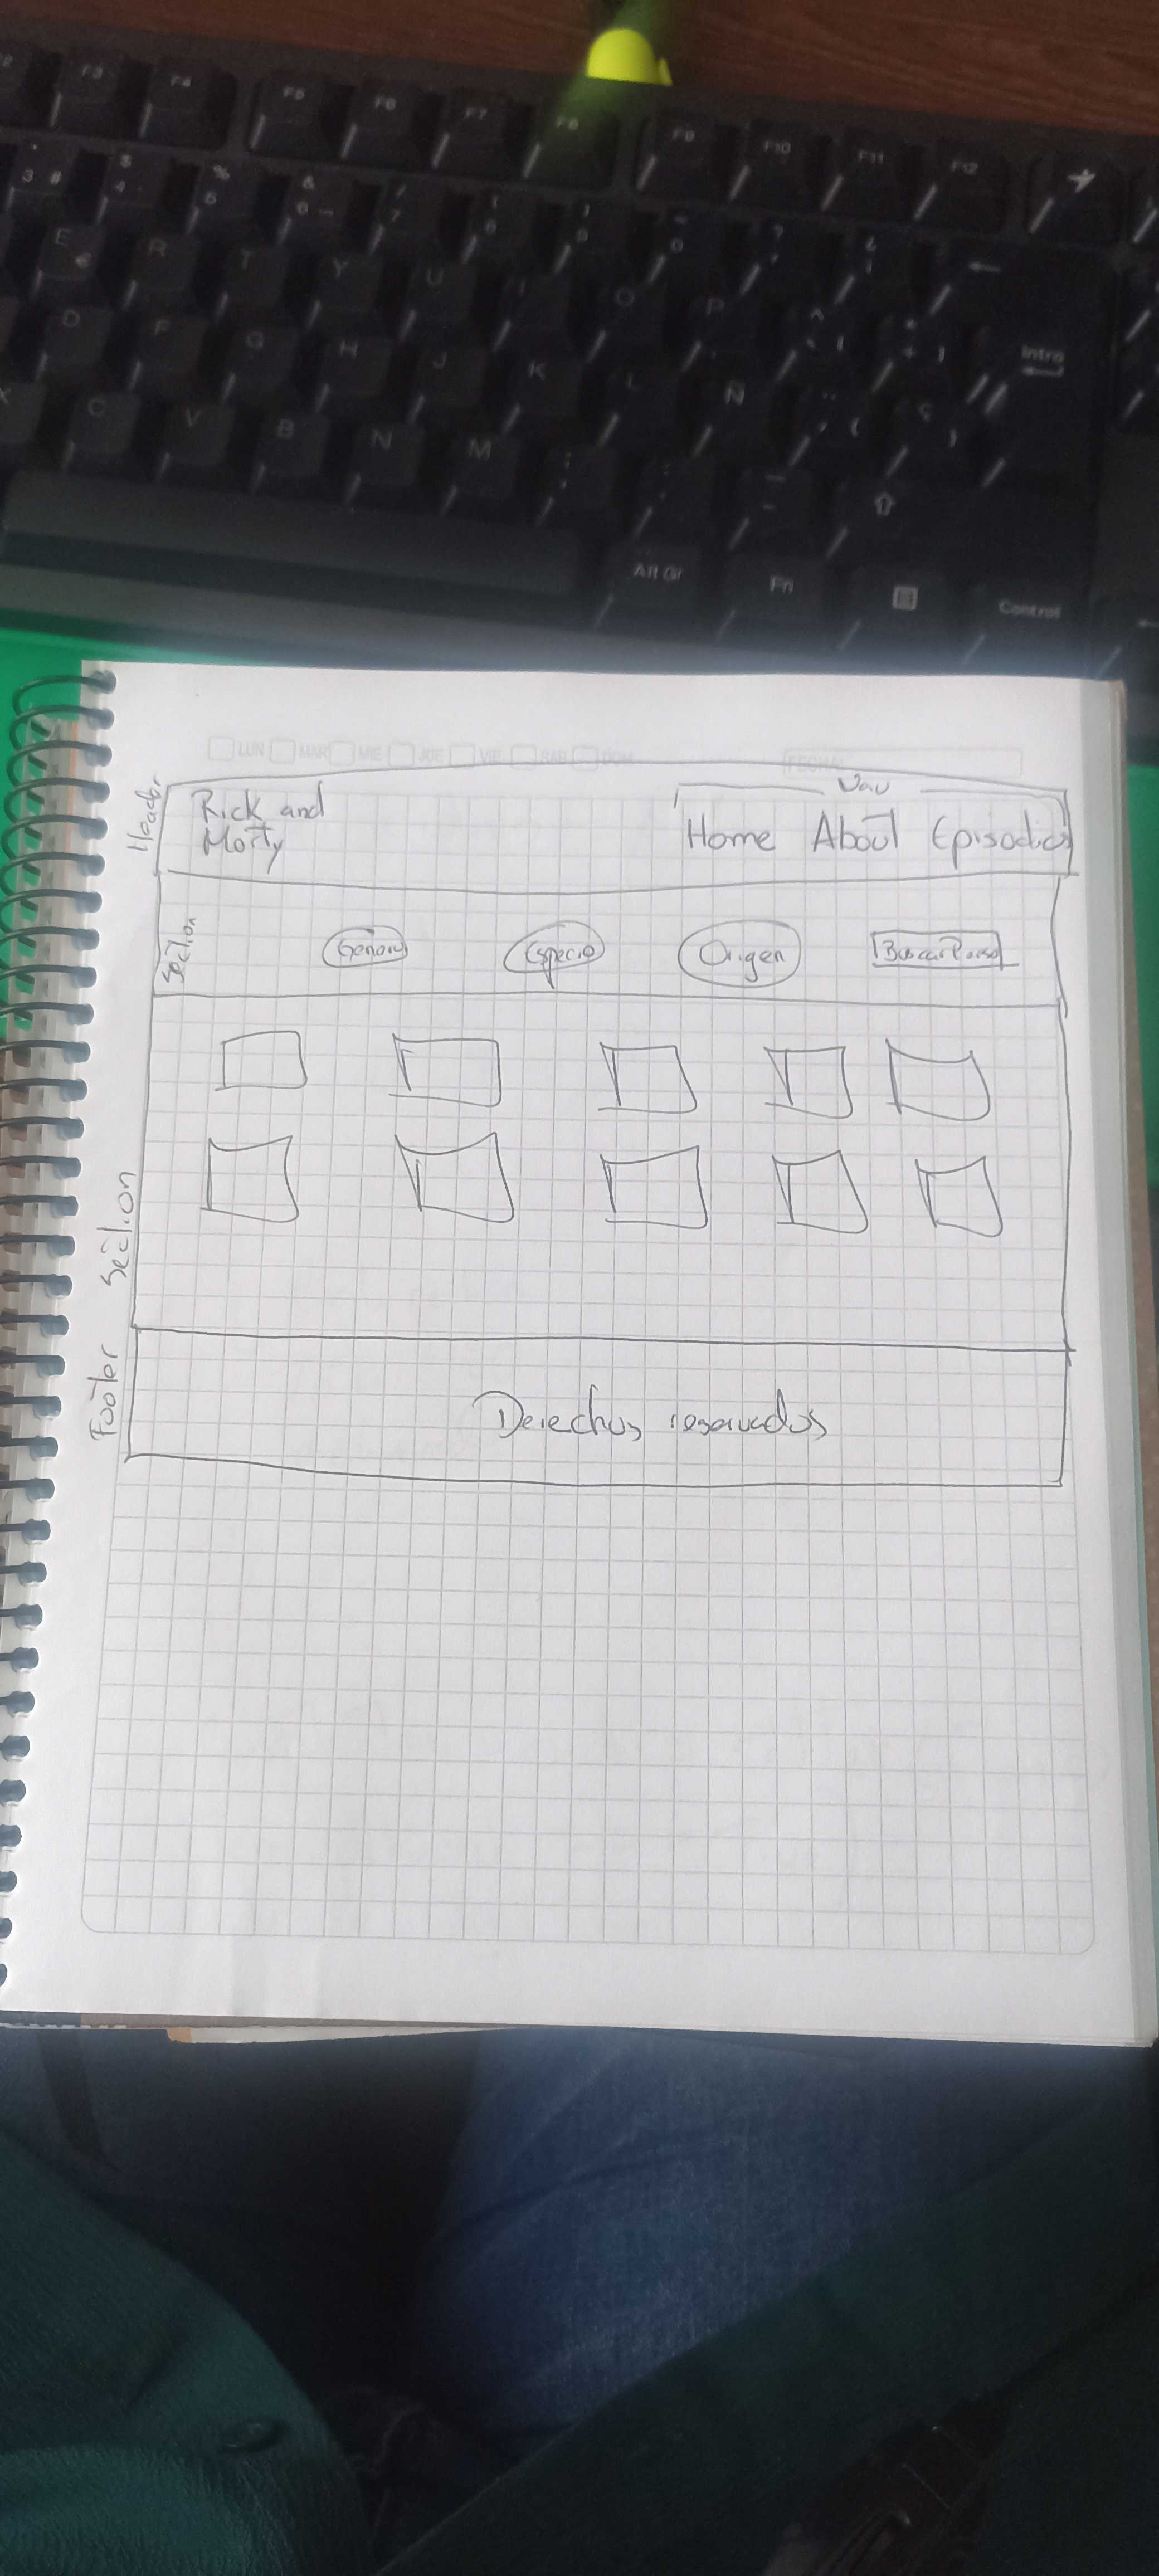 F3 F4 F5 F6 F7 F8 F9 F10 F11 F12
3 # $ 4 % 5 & 6 / 7 ( ) 9 = 0 ? ¿
E € R T Y U I O P
D F G H J K L Ñ Ç Intro
C V B N M
Alt Gr Fn Control
LUN MAR MIE JUE VIE SAB DOM FECHA:
Header
Rick and
Morty
Nav
Home About Episodios
Section
Genero Especie Origen
Section
Footer
Derechos reservados